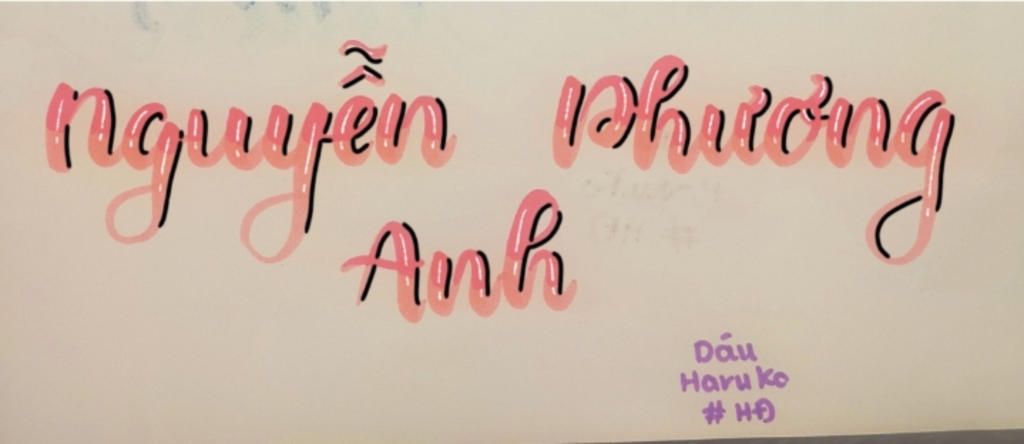 Nguyễn Phương
Anh
Dáu
Haruko
# HĐ